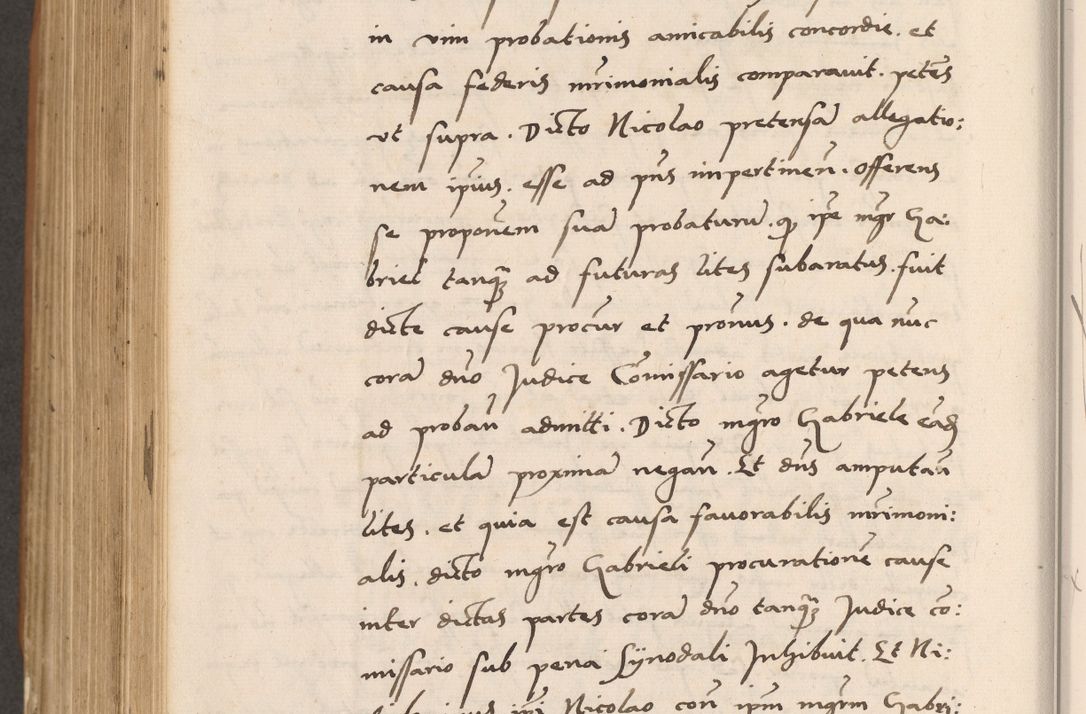 in vim probationis amicabilis concordie. et
causa federis mrimonialis comparavit. petens
ut supra. Dicto Nicolao pretensã allegatio:
nem ipius. esse ad pns impertinen. offerens
se proponem suã probaturũ. q ipe mgr Ga:
briel tanq̃ ad futuras lites subaratus. fuit
dicte cause procur et pronus. de qua nũc
corã dno Judice Cõmissario agetur petens
ad proban admitti. Dicto mgro Gabriele eand
particulã proximã negan. Et dns amputan
lites. et quia est causa favorabilis mrimoni:
alis. dicto mgro Gabrieli procurationẽ cause
inter dictas partes corã dno tanq̃ Judice co:
missario sub pena Synodali Inhibuit. Et Ni:
ipi Nicolao con ipm mgrm Gabri: